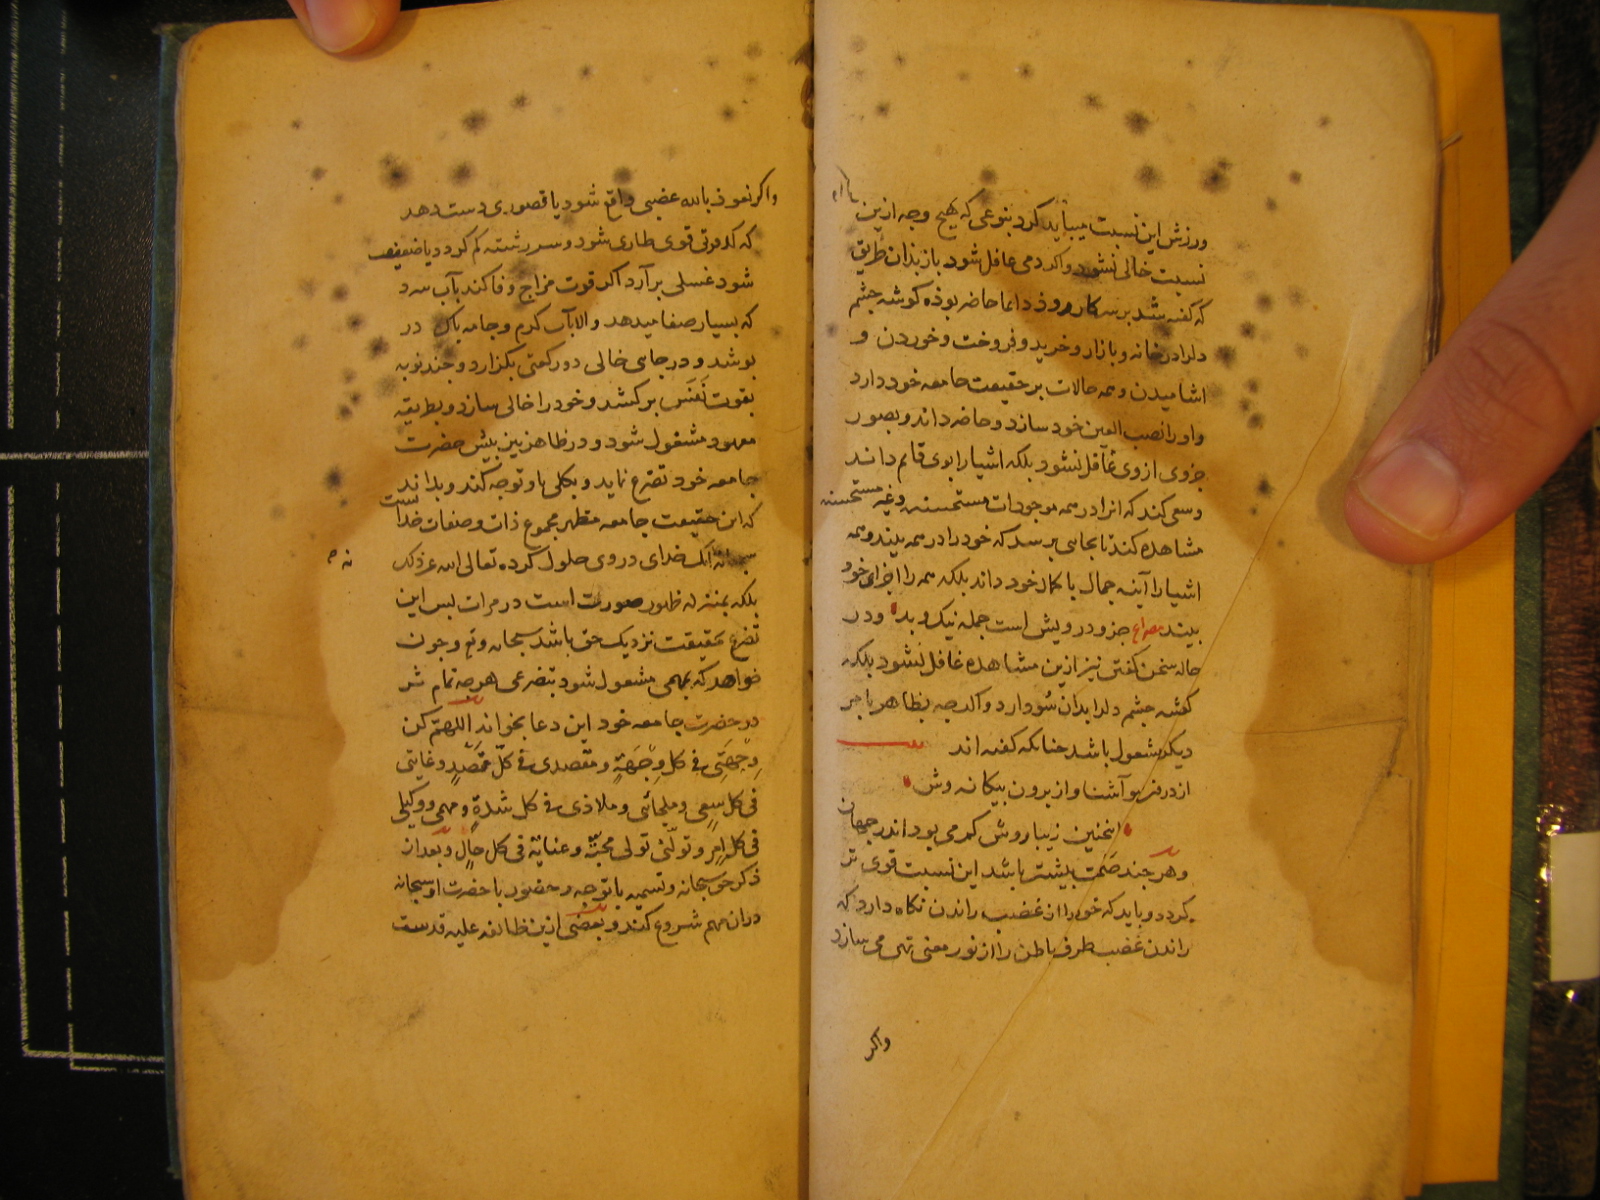 ورزش این نسبت میباید کرد بنوعی که هیچ وجه ازین
نسبت خالی نشود واکر دمی غافل شود باز بذان طریق
که کفته شد برسر کار رود دایما حاضر بوذه کوشه چشم
دلرا در خانه و بازار و خرید و فروخت و خوردن و
اشامیدن و همه حالات بر حقیقت جامعه خود دارد
واورا نصب العین خود سازد و حاضر داند و بصور
جزوی ازوی غافل نشود بلکه اشیا را بوی قایم داند
وسعی کند که انرا در همه موجودات مستحسنه وغیر مستحسنه
مشاهده کند تا بجایی برسد که خود را در همه بیند و همه
اشیا را آینه جمال با کمال خود داند بلکه همه را اجزای خود
بیند مصراع جزو درویش است جمله نیک و بد ودر
حاله سخن کفتن نیز ازین مشاهده غافل نشود بلکه
کوشه چشم دلرا بدان سو دارد واکرچه بظاهر بامر
دیکر مشغول باشد چنانکه کفته اند
از درون شو آشنا و از برون بیکانه وش
اینچنین زیبا روش کم می بود اندر جهان
وهر چند صمت بیشتر باشد این نسبت قوی تر
کردد و باید که خود را از غضب راندن نکاه دارد که
راندن غضب ظرف باطن را از نور معنی تهی می سازد
واکر
واکر نعوذ بالله غضبی واقع شود یا قصوری دست دهد
که کدورتی قوی طاری شود و سررشته کم کردد یا ضعیف
شود غسلی برآرد اکر قوت مزاج وفا کند بآب سرد
که بسیار صفا میدهد والا بآب کرم و جامه پاک در
پوشد و در جایی خالی دو رکعتی بکزارد و چند نوبه
بقوت نفس برکشد و خود را خالی سازد و بطریقه
معهود مشغول شود و در ظاهر نیز پیش حضرت
جامعه خود تضرع نماید و بکلی باو توجه کند و بداند
که این حقیقت جامعه مظهر مجموع ذات و صفات خداست
نه آنک خدای در وی حلول کرده تعالی الله عن ذلک
بلکه بمنزله ظهور صورت است در مرات پس این
تضرع بحقیقت نزدیک حق باشد سبحانه وتع وچون
خواهد که بمهمی مشغول شود بتضرعی هرچه تمام تر
در حضرت جامعه خود این دعا بخواند اللهم کن
وجهتی فی کل وجهة ومقصدی فی کل مقصد وغایتی
فی کل سعی وملجائی وملاذی فی کل شدة ومهم ووکیلی
فی کل امر وتولنی تولی محبة وعنایة فی کل حال وبعد از
ذکر حق سبحانه وتسمیه با توجه وحضور با حضرت او سبحانه
دران مهم شروع کند وبعضی ازین طائفه علیه قدست